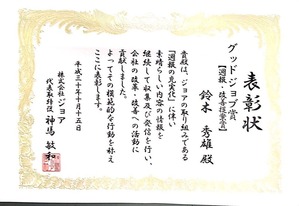 表彰状
グッドジョブ賞
【週報・改善提案賞】
鈴木 秀雄 殿
貴殿は、ジョアの取り組みである
「週報の充実化」に伴い
素晴らしい内容の情報を
継続して収集及び発信を行い、
会社の改革・改善への活動に
貢献しました。
よってその模範的な行動を称え
ここに表彰します。
平成三十年十月十五日
株式会社 ジョア
代表取締役 神馬 敏和